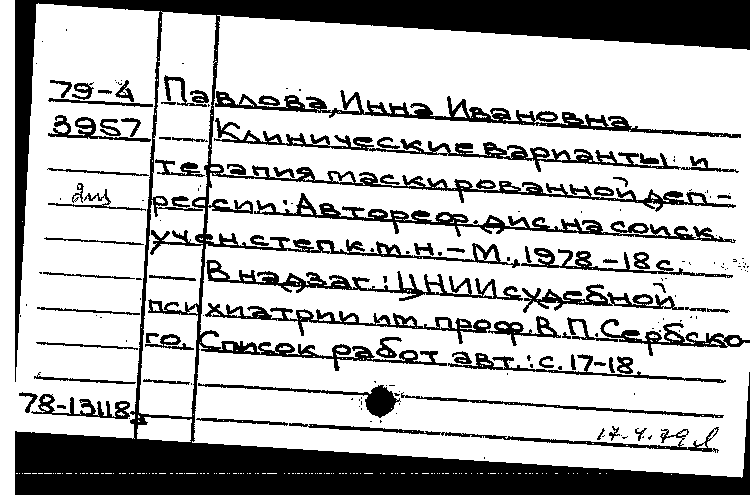 79-4 Павлова, Инна Ивановна.
3957 Клинические варианты и
терапия маскированной деп-
рессии: Автореф. дис. на соиск.
учен. степ. к.м.н. - М., 1978. - 18 с.
В надзаг.: ЦНИИ судебной
психиатрии им. проф. В.П. Сербско-
го. Список работ авт.: с. 17-18.
78-13118а
17.4.79